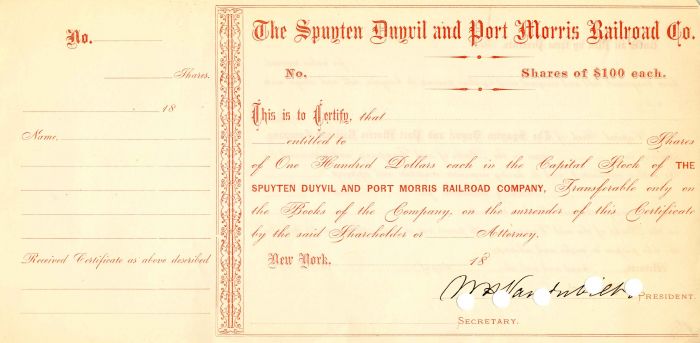 No.
Shares.
18
Name
Received Certificate as above described
The Spuyten Duyvil and Port Morris Railroad Co.
No. Shares of $100 each.
This is to Certify, that
entitled to Shares
of One Hundred Dollars each in the Capital Stock of THE
SPUYTEN DUYVIL AND PORT MORRIS RAILROAD COMPANY, Transferable only on
the Books of the Company, on the surrender of this Certificate
by the said Shareholder or Attorney.
New York, 18
W H Vanderbilt PRESIDENT.
SECRETARY.